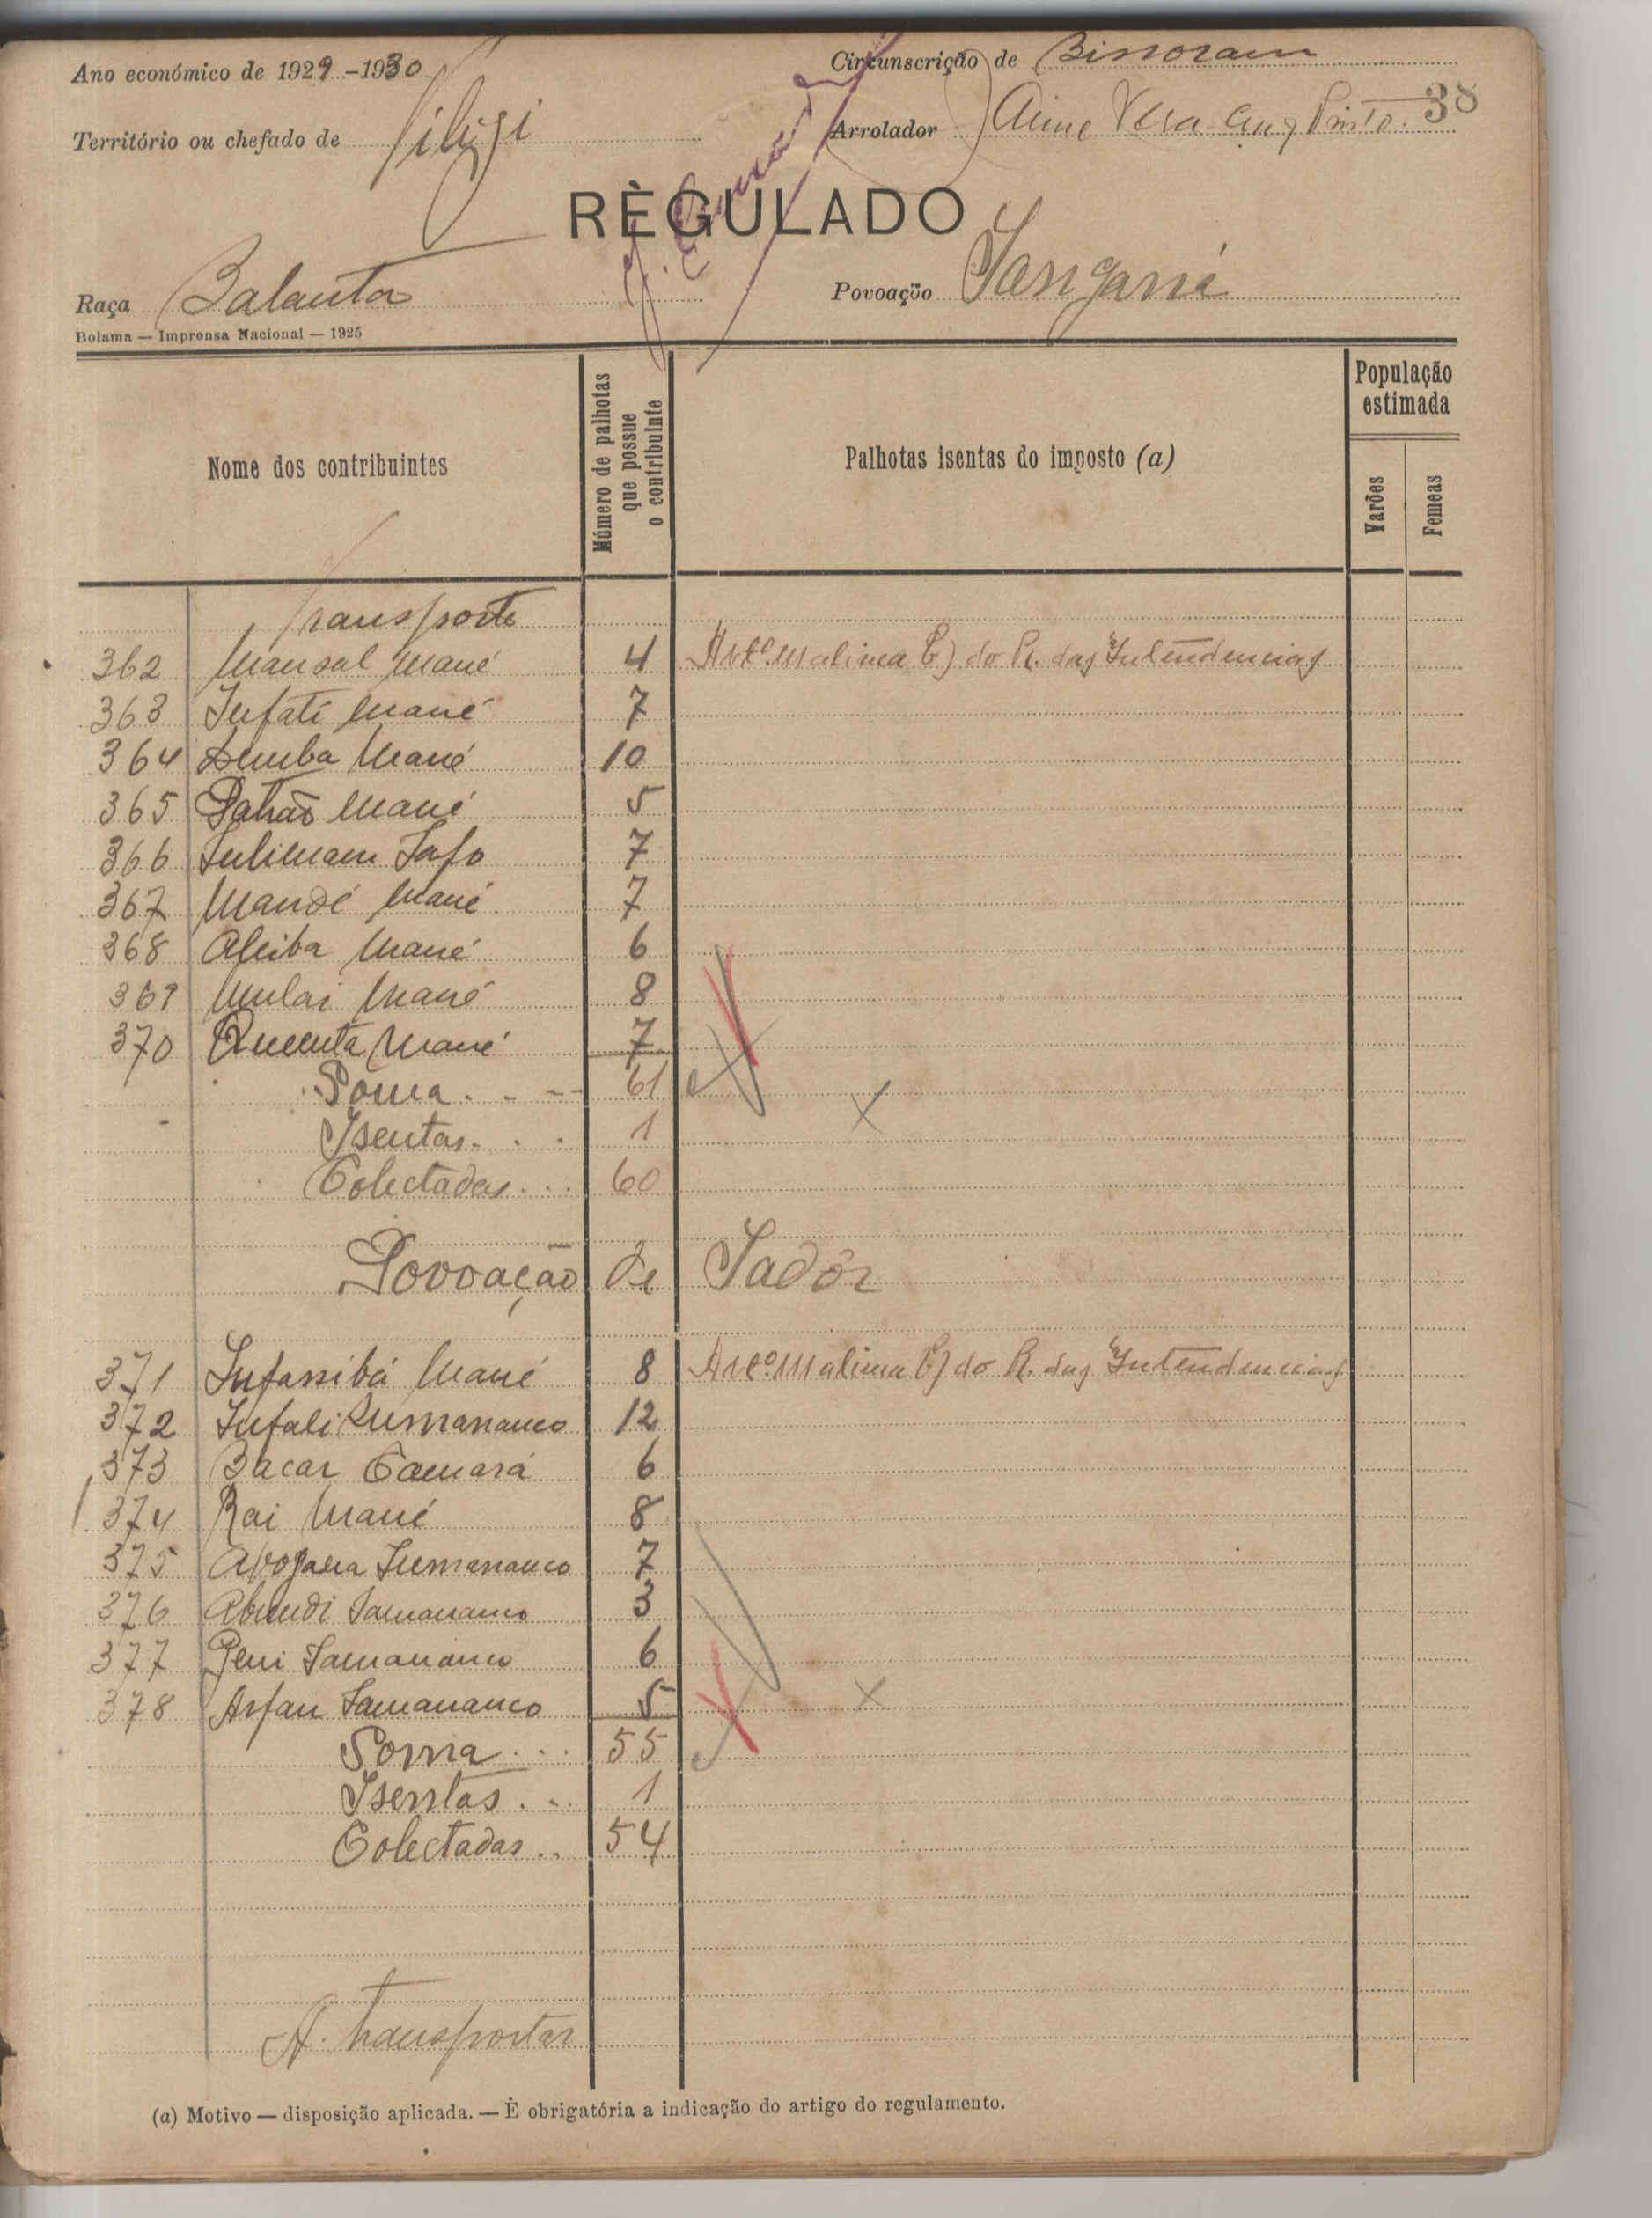 Ano económico de 1929-1930
Circunscrição de Bissoram
38
Território ou chefado de
Arrolador Aime Vera Cruz Pinto
RÈGULADO
Raça Balanta
Povoação Sansaná
Bolama — Imprensa Nacional — 1925
Nome dos contribuintes
Número de palhotas que possue o contribuinte
Palhotas isentas do imposto (a)
População estimada
Varões
Femeas
Transporte
362 Mansal Mané 4 Artº. 11 alinea C) do R. das Intendencias
363 Infali Mané 7
364 Mané 10
365 Mané 5
366 Sulimam 7
367 Mandé Mané 7
368 Mané 6
369 Mulai Mané 8
370 Quecuta Mané 7
Soma 61
Isentas 1
Colectadas 60
Povoação de Sadôr
371 Infassibá Mané 8 Artº. 11 alinea C) do R. das Intendencias
372 Infali 12
373 Bacar Camará 6
374 Mané 8
375 7
376 Samananco 3
377 Samananco 6
378 Arfan Samananco 5
Soma 55
Isentas 1
Colectadas 54
A transportar
(a) Motivo — disposição aplicada. — È obrigatória a indicação do artigo do regulamento.